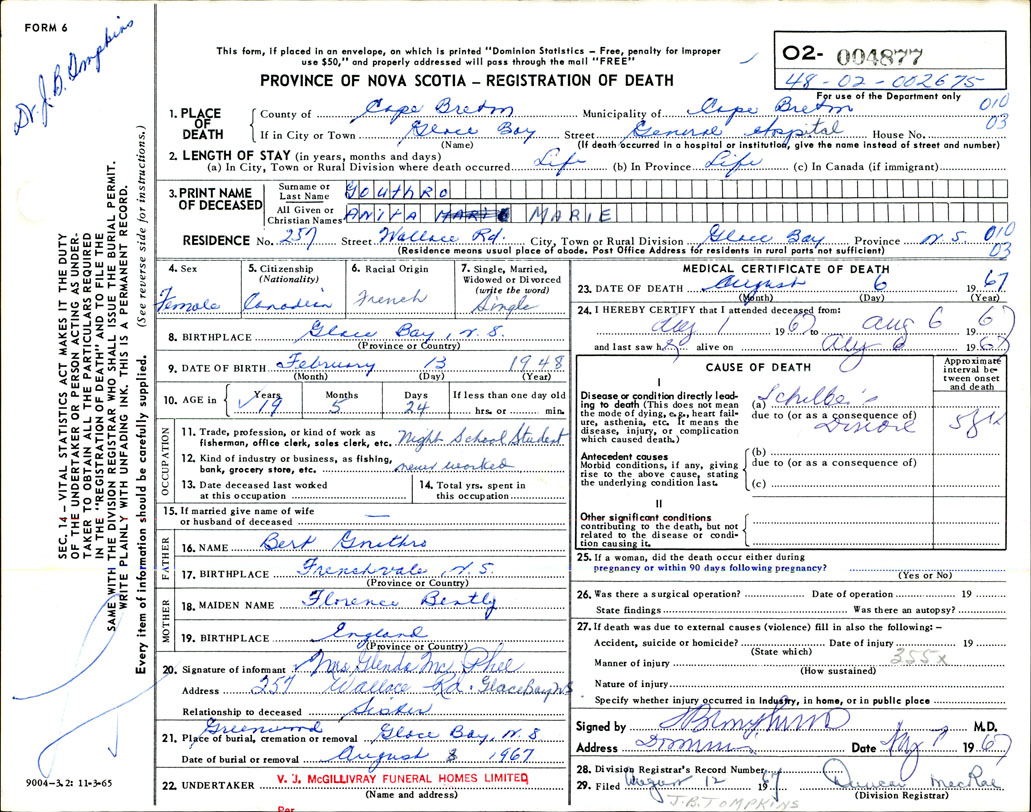 FORM 6
Dr. J. B. Tompkins
This form, if placed in an envelope, on which is printed "Dominion Statistics – Free, penalty for improper
use $50," and properly addressed will pass through the mail "FREE"
PROVINCE OF NOVA SCOTIA – REGISTRATION OF DEATH
O2- 004877
48-02-002675
For use of the Department only
010
03
1. PLACE OF DEATH
County of Cape Breton Municipality of Cape Breton
If in City or Town Glace Bay Street General Hospital House No.
(Name) (If death occurred in a hospital or institution, give the name instead of street and number)
2. LENGTH OF STAY (in years, months and days)
(a) In City, Town or Rural Division where death occurred Life (b) In Province Life (c) In Canada (if immigrant)
3. PRINT NAME OF DECEASED
Surname or Last Name GOUTHRO
All Given or Christian Names ANITA MARIE
RESIDENCE No. 257 Street Wallace Rd. City, Town or Rural Division Glace Bay Province N.S. 010
03
(Residence means usual place of abode. Post Office Address for residents in rural parts not sufficient)
4. Sex Female
5. Citizenship (Nationality) Canadian
6. Racial Origin French
7. Single, Married, Widowed or Divorced (write the word) Single
8. BIRTHPLACE Glace Bay, N.S.
(Province or Country)
9. DATE OF BIRTH February 13 1948
(Month) (Day) (Year)
10. AGE in Years 19 Months 5 Days 24 If less than one day old hrs. or min.
OCCUPATION
11. Trade, profession, or kind of work as fisherman, office clerk, sales clerk, etc. Night School Student
12. Kind of industry or business, as fishing, bank, grocery store, etc. never worked
13. Date deceased last worked at this occupation
14. Total yrs. spent in this occupation
15. If married give name of wife or husband of deceased —
FATHER
16. NAME Bert Gouthro
17. BIRTHPLACE Frenchvale, N.S.
(Province or Country)
MOTHER
18. MAIDEN NAME Florence Bently
19. BIRTHPLACE England
(Province or Country)
20. Signature of informant Mrs. Glenda Mc Phee
Address 257 Wallace Rd. Glace Bay NS
Relationship to deceased Sister
Greenwood
21. Place of burial, cremation or removal Glace Bay, N.S
Date of burial or removal August 8 1967
22. UNDERTAKER V. J. McGILLIVRAY FUNERAL HOMES LIMITED
(Name and address)
Per
9004-3.2: 11-3-65
MEDICAL CERTIFICATE OF DEATH
23. DATE OF DEATH August 6 1967
(Month) (Day) (Year)
24. I HEREBY CERTIFY that I attended deceased from:
Aug 1 1967 to Aug 6 1967
and last saw her alive on Aug 6 1967
CAUSE OF DEATH
Approximate interval between onset and death
I
Disease or condition directly leading to death (This does not mean the mode of dying, e.g., heart failure, asthenia, etc. It means the disease, injury, or complication which caused death.)
(a) Schilder's
due to (or as a consequence of)
Disease
Antecedent causes
Morbid conditions, if any, giving rise to the above cause, stating the underlying condition last.
(b)
due to (or as a consequence of)
(c)
II
Other significant conditions
contributing to the death, but not related to the disease or condition causing it.
25. If a woman, did the death occur either during pregnancy or within 90 days following pregnancy?
(Yes or No)
26. Was there a surgical operation? Date of operation 19
State findings Was there an autopsy?
27. If death was due to external causes (violence) fill in also the following: –
Accident, suicide or homicide? Date of injury 19
(State which)
355x
Manner of injury
(How sustained)
Nature of injury
Specify whether injury occurred in industry, in home, or in public place
Signed by JB Tompkins M.D.
Address Dominion Date Aug 7 1967
28. Division Registrar's Record Number
29. Filed August 12 1967 Duncan MacRae
(Division Registrar)
J.B. TOMPKINS
SEC. 14 – VITAL STATISTICS ACT MAKES IT THE DUTY
OF THE UNDERTAKER OR PERSON ACTING AS UNDER-
TAKER TO OBTAIN ALL THE PARTICULARS REQUIRED
IN THE "REGISTRATION OF DEATH" AND TO FILE THE
SAME WITH THE DIVISION REGISTRAR WHO SHALL ISSUE THE BURIAL PERMIT.
WRITE PLAINLY WITH UNFADING INK. THIS IS A PERMANENT RECORD.
Every item of information should be carefully supplied. (See reverse side for instructions.)